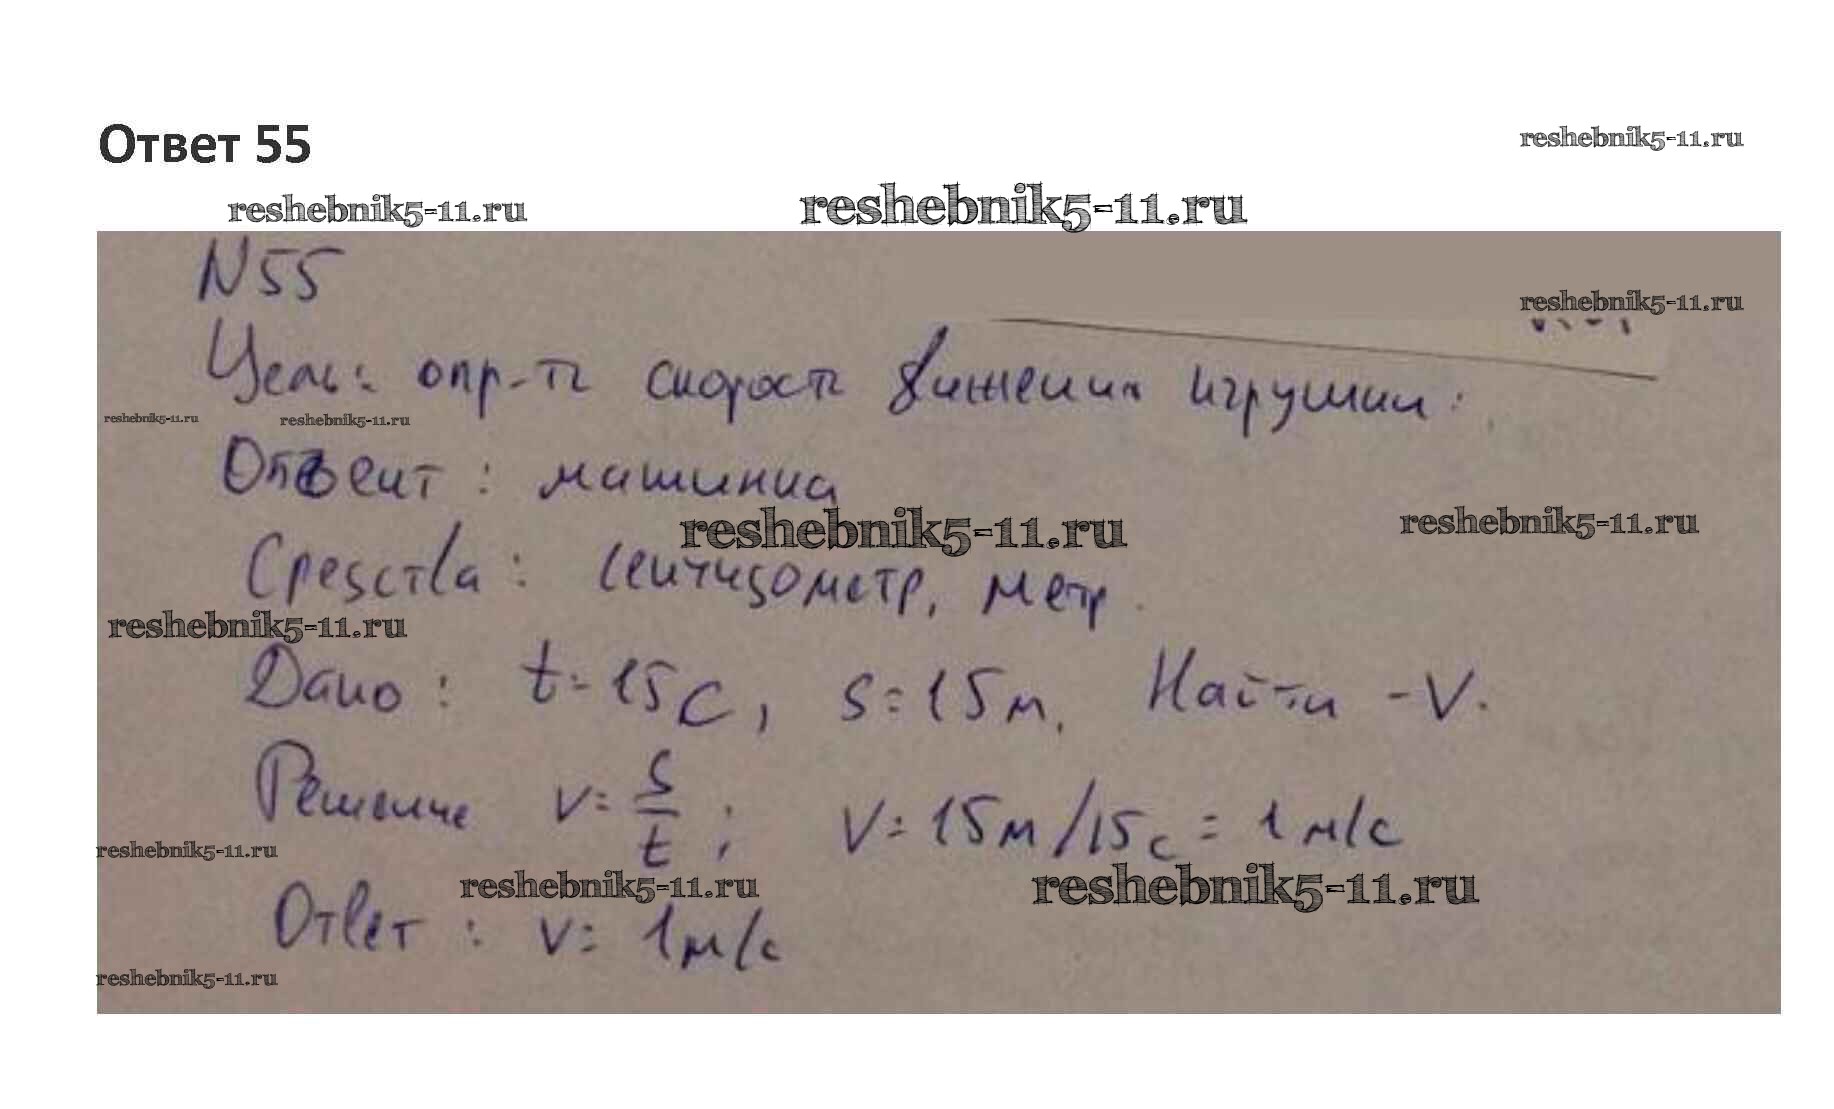 Ответ 55
reshebnik5-11.ru
reshebnik5-11.ru reshebnik5-11.ru
N55
reshebnik5-11.ru
Цель: опр-ть скорость движения игрушки:
reshebnik5-11.ru reshebnik5-11.ru
Опвект : машинка
reshebnik5-11.ru reshebnik5-11.ru
Средства : сентизометр, метр.
reshebnik5-11.ru
Дано : t=15с, s=15м, Найти -V.
Решение v= s/t ; V=15м/15с = 1м/с
reshebnik5-11.ru
reshebnik5-11.ru reshebnik5-11.ru
Ответ : v= 1м/с
reshebnik5-11.ru